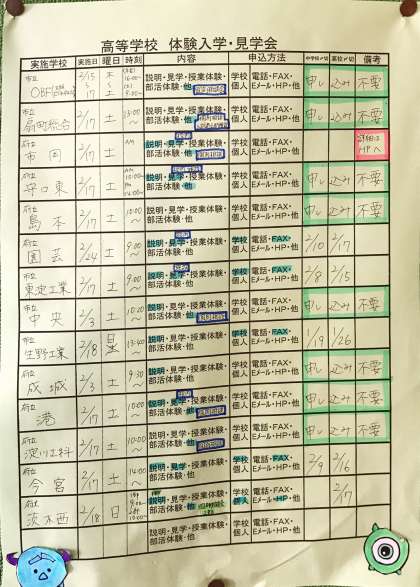 高等学校 体験入学・見学会
実施学校 実施日 曜日 時刻 内容 申込方法 中学校〆切 高校〆切 備考
市立 OBF 2/15 木 16:00~ 説明・見学・授業体験・部活体験・他 学校 個人 電話・FAX・Eメール・HP・他 申し込み不要
市立 扇町総合 2/17 土 説明・見学・授業体験・部活体験・他 学校 個人 電話・FAX・Eメール・HP・他 申し込み不要
府立 市岡 2/17 土 AM 説明・見学・授業体験・部活体験・他 学校 個人 電話・FAX・Eメール・HP・他 詳細はHPへ
府立 守口東 2/17 土 AM 説明・見学・授業体験・部活体験・他 学校 個人 電話・FAX・Eメール・HP・他 申し込み不要
府立 島本 2/17 土 10:00~ 説明・見学・授業体験・部活体験・他 学校 個人 電話・FAX・Eメール・HP・他 申し込み不要
府立 園芸 2/24 土 9:00~ 説明・見学・授業体験・部活体験・他 学校 個人 電話・FAX・Eメール・HP・他 2/10 2/17
市立 東淀工業 2/17 土 9:00~ 説明・見学・授業体験・部活体験・他 学校 個人 電話・FAX・Eメール・HP・他 2/8 2/15
市立 中央 2/3 土 10:00~ 説明・見学・授業体験・部活体験・他 学校 個人 電話・FAX・Eメール・HP・他 申し込み不要
市立 生野工業 2/18 日 13:40~ 説明・見学・授業体験・部活体験・他 学校 個人 電話・FAX・Eメール・HP・他 1/19 1/26
府立 成城 2/3 土 9:30~ 説明・見学・授業体験・部活体験・他 学校 個人 電話・FAX・Eメール・HP・他 申し込み不要
府立 港 2/17 土 10:00~ 説明・見学・授業体験・部活体験・他 学校 個人 電話・FAX・Eメール・HP・他 申し込み不要
府立 淀川工科 2/17 土 10:00~ 説明・見学・授業体験・部活体験・他 学校 個人 電話・FAX・Eメール・HP・他 申し込み不要
府立 今宮 2/17 土 14:00~ 説明・見学・授業体験・部活体験・他 学校 個人 電話・FAX・Eメール・HP・他 2/9 2/16
府立 茨木西 2/18 日 説明・見学・授業体験・部活体験・他 学校 個人 電話・FAX・Eメール・HP・他 2/17
説明・見学・授業体験・部活体験・他 学校 個人 電話・FAX・Eメール・HP・他